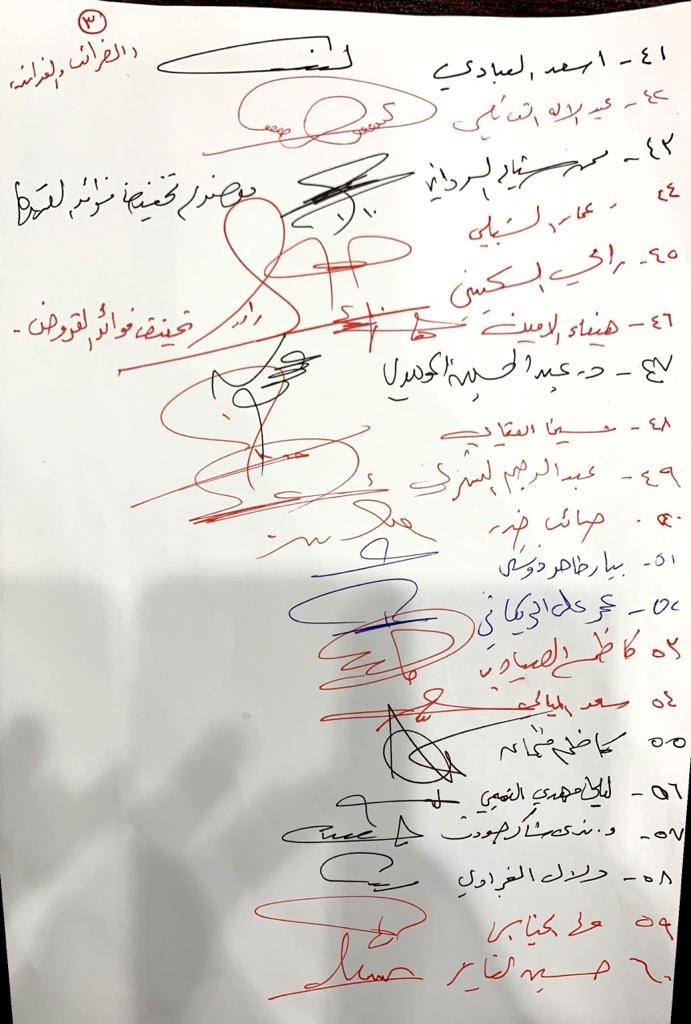 ٣
الضرائب والغرامات
٤١- اسعد العبادي
٤٢- عبد الاله النائلي
٤٣- محمد شياع السوداني
تخفيض فوائد القروض
٤٤- عمار الشبلي
٤٥- رامي السكيني
٤٦- هيفاء الامين
تخفيض فوائد القروض -
٤٧- د. عبد الحسين الموسوي
٤٨- حسين العقابي
٤٩- عبد الرحيم الشمري
٥٠- صائب خدر
٥١- بيار طاهر دوسكي
٥٢- عمر علي
٥٣- كاظم الصيادي
٥٤- سعد الميالي
٥٥- كاظم
٥٦- ليلى مهدي التميمي
٥٧- د. ندى شاكر جودت
٥٨- دلال الغراوي
٥٩- علي
٦٠- حسين